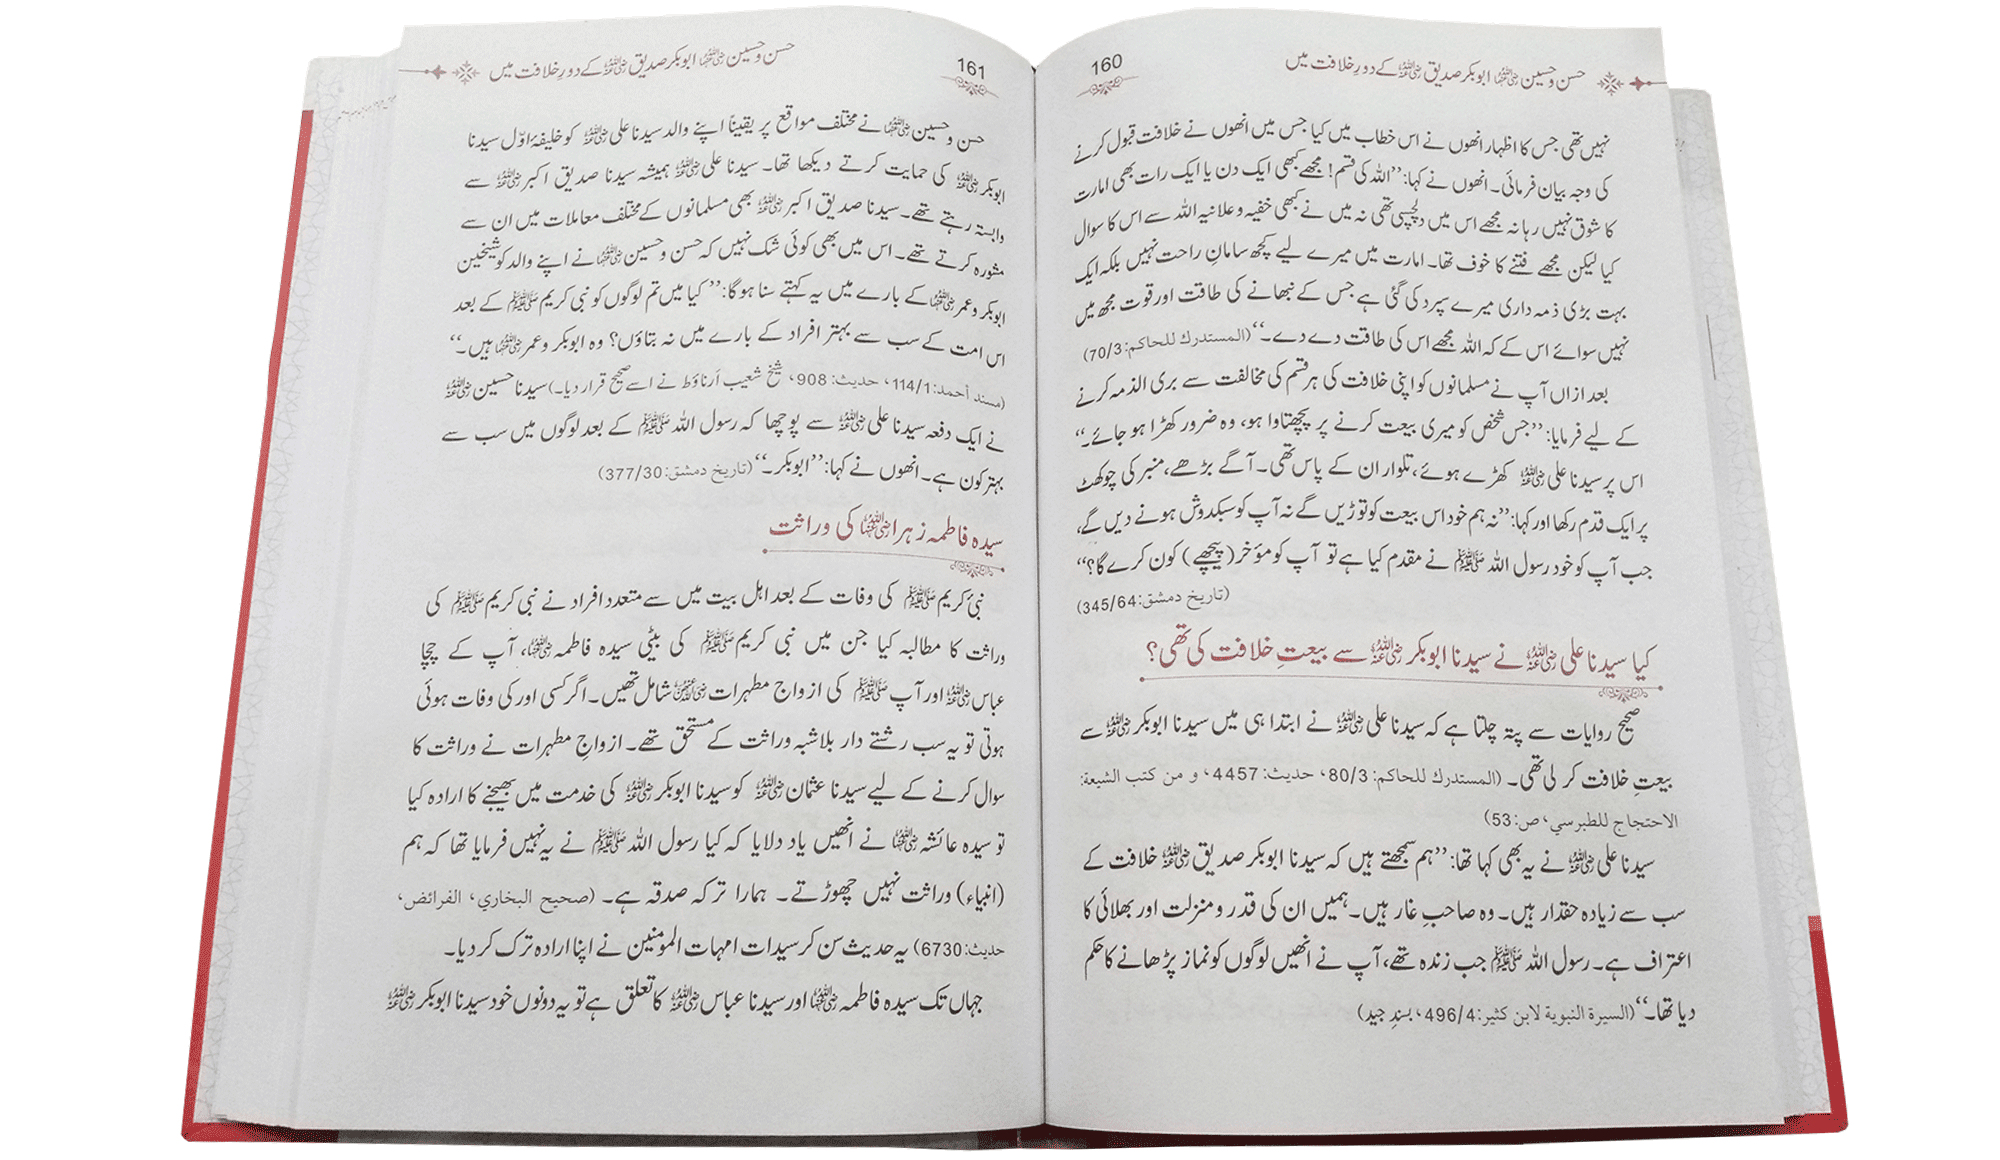 حسن و حسین رضی اللہ عنہما ابوبکر صدیق رضی اللہ عنہ کے دورِ خلافت میں
160
نہیں تھی جس کا اظہار انھوں نے اس خطاب میں کیا جس میں انھوں نے خلافت قبول کرنے
کی وجہ بیان فرمائی۔ انھوں نے کہا: ’’اللہ کی قسم! مجھے کبھی ایک دن یا ایک رات بھی امارت
کا شوق نہیں رہا نہ مجھے اس میں دلچسپی تھی نہ میں نے کبھی خفیہ و علانیہ اللہ سے اس کا سوال
کیا لیکن مجھے فتنے کا خوف تھا۔ امارت میں میرے لیے کچھ سامانِ راحت نہیں بلکہ ایک
بہت بڑی ذمہ داری میرے سپرد کی گئی ہے جس کے نبھانے کی طاقت اور قوت مجھ میں
نہیں سوائے اس کے کہ اللہ مجھے اس کی طاقت دے دے۔‘‘ (المستدرك للحاكم: 70/3)
بعد ازاں آپ نے مسلمانوں کو اپنی خلافت کی ہر قسم کی مخالفت سے بری الذمہ کرنے
کے لیے فرمایا: ’’جس شخص کو میری بیعت کرنے پر پچھتاوا ہو، وہ ضرور کھڑا ہو جائے۔‘‘
اس پر سیدنا علی رضی اللہ عنہ کھڑے ہوئے، تلوار ان کے پاس تھی۔ آگے بڑھے، منبر کی چوکھٹ
پر ایک قدم رکھا اور کہا: ’’نہ ہم خود اس بیعت کو توڑیں گے نہ آپ کو سبکدوش ہونے دیں گے،
جب آپ کو خود رسول اللہ ﷺ نے مقدم کیا ہے تو آپ کو مؤخر (پیچھے) کون کرے گا؟‘‘
(تاريخ دمشق: 345/64)
کیا سیدنا علی رضی اللہ عنہ نے سیدنا ابوبکر رضی اللہ عنہ سے بیعتِ خلافت کی تھی؟
صحیح روایات سے پتہ چلتا ہے کہ سیدنا علی رضی اللہ عنہ نے ابتدا ہی میں سیدنا ابوبکر رضی اللہ عنہ سے
بیعتِ خلافت کر لی تھی۔ (المستدرك للحاكم: 80/3، حديث: 4457، و من كتب الشيعة:
الاحتجاج للطبرسي، ص: 53)
سیدنا علی رضی اللہ عنہ نے یہ بھی کہا تھا: ’’ہم سمجھتے ہیں کہ سیدنا ابوبکر صدیق رضی اللہ عنہ خلافت کے
سب سے زیادہ حقدار ہیں۔ وہ صاحبِ غار ہیں۔ ہمیں ان کی قدر و منزلت اور بھلائی کا
اعتراف ہے۔ رسول اللہ ﷺ جب زندہ تھے، آپ نے انھیں لوگوں کو نماز پڑھانے کا حکم
دیا تھا۔‘‘ (السيرة النبوية لابن كثير: 496/4، بسندِ جید)
حسن و حسین رضی اللہ عنہما ابوبکر صدیق رضی اللہ عنہ کے دورِ خلافت میں
161
حسن و حسین رضی اللہ عنہما نے مختلف مواقع پر یقیناً اپنے والد سیدنا علی رضی اللہ عنہ کو خلیفۂ اوّل سیدنا
ابوبکر رضی اللہ عنہ کی حمایت کرتے دیکھا تھا۔ سیدنا علی رضی اللہ عنہ ہمیشہ سیدنا صدیق اکبر رضی اللہ عنہ سے
وابستہ رہتے تھے۔ سیدنا صدیق اکبر رضی اللہ عنہ بھی مسلمانوں کے مختلف معاملات میں ان سے
مشورہ کرتے تھے۔ اس میں بھی کوئی شک نہیں کہ حسن و حسین رضی اللہ عنہما نے اپنے والد کو شیخین
ابوبکر و عمر رضی اللہ عنہما کے بارے میں یہ کہتے سنا ہوگا: ’’کیا میں تم لوگوں کو نبی کریم ﷺ کے بعد
اس امت کے سب سے بہتر افراد کے بارے میں نہ بتاؤں؟ وہ ابوبکر و عمر رضی اللہ عنہما ہیں۔‘‘
(مسند أحمد: 114/1، حديث: 908، شیخ شعیب اَرناؤط نے اسے صحیح قرار دیا۔) سیدنا حسین رضی اللہ عنہ
نے ایک دفعہ سیدنا علی رضی اللہ عنہ سے پوچھا کہ رسول اللہ ﷺ کے بعد لوگوں میں سب سے
بہتر کون ہے۔ انھوں نے کہا: ’’ابوبکر۔‘‘ (تاريخ دمشق: 377/30)
سیدہ فاطمہ زہرا رضی اللہ عنہا کی وراثت
نبیٔ کریم ﷺ کی وفات کے بعد اہل بیت میں سے متعدد افراد نے نبی کریم ﷺ کی
وراثت کا مطالبہ کیا جن میں نبی کریم ﷺ کی بیٹی سیدہ فاطمہ رضی اللہ عنہا، آپ کے چچا
عباس رضی اللہ عنہ اور آپ ﷺ کی ازواج مطہرات رضی اللہ عنہن شامل تھیں۔ اگر کسی اور کی وفات ہوئی
ہوتی تو یہ سب رشتے دار بلاشبہ وراثت کے مستحق تھے۔ ازواجِ مطہرات نے وراثت کا
سوال کرنے کے لیے سیدنا عثمان رضی اللہ عنہ کو سیدنا ابوبکر رضی اللہ عنہ کی خدمت میں بھیجنے کا ارادہ کیا
تو سیدہ عائشہ رضی اللہ عنہا نے انھیں یاد دلایا کہ کیا رسول اللہ ﷺ نے یہ نہیں فرمایا تھا کہ ہم
(انبیاء) وراثت نہیں چھوڑتے۔ ہمارا ترکہ صدقہ ہے۔ (صحيح البخاري، الفرائض،
حديث: 6730) یہ حدیث سن کر سیدات امہات المومنین نے اپنا ارادہ ترک کر دیا۔
جہاں تک سیدہ فاطمہ رضی اللہ عنہا اور سیدنا عباس رضی اللہ عنہ کا تعلق ہے تو یہ دونوں خود سیدنا ابوبکر رضی اللہ عنہ